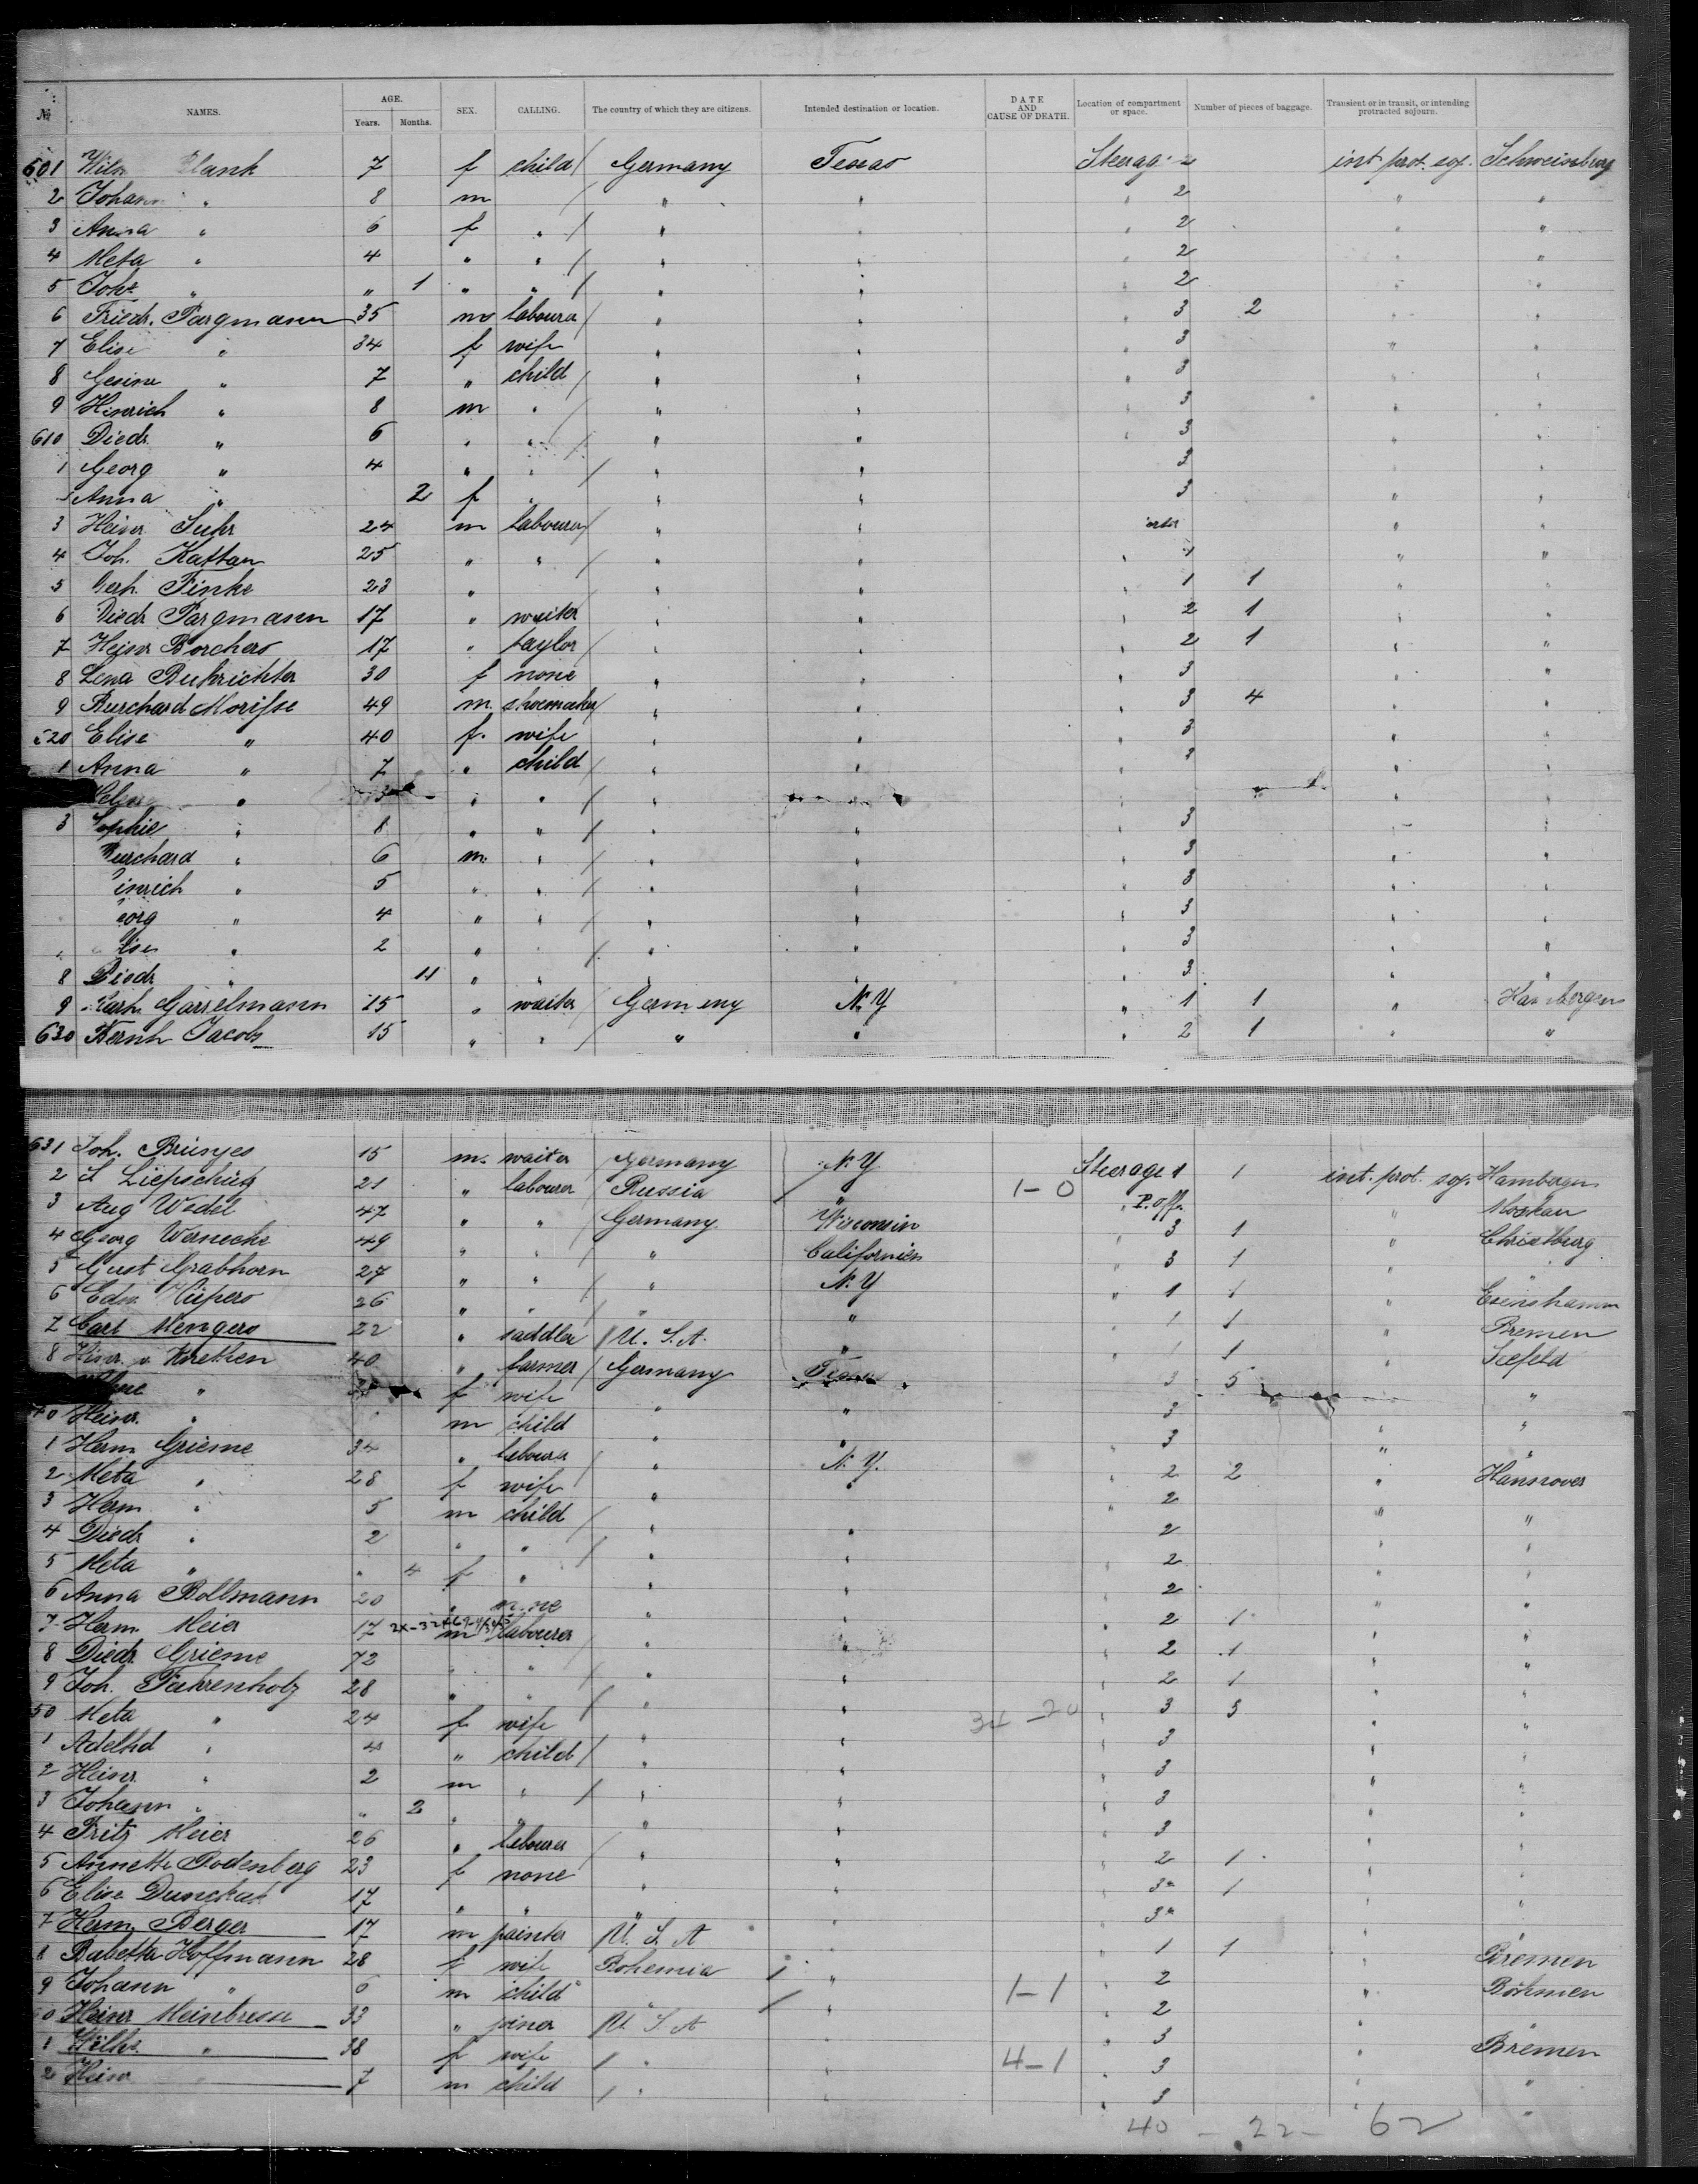 № NAMES. AGE. Years. Months. SEX. CALLING. The country of which they are citizens. Intended destination or location. DATE AND CAUSE OF DEATH. Location of compartment or space. Number of pieces of baggage. Transient or in transit, or intending protracted sojourn.
601 7 f child / Germany Texas Steerag 2 int. prot. soj.
2 Johann " 8 m / " " " 2 " "
3 Anna " 6 f " / " " " 2 " "
4 Meta " 4 " " / " " " 2 " "
5 Joh. " " 1 " " / " " " 2 " "
6 Friedr. Pargmann 35 m labourer / " " " 3 2 " "
7 Elise " 34 f wife " " " 3 " "
8 Gesine " 7 " child / " " " 3 " "
9 Hinrich " 8 m " / " " " 3 " "
610 Diedr. " 6 " " / " " " 3 " "
1 Georg " 4 " " / " " " 3 " "
Anna " 2 f " " " " 3 " "
3 Heinr Suhr 24 m labourer / " " " "
4 Joh. Kattan 25 " " / " " " 1 " "
5 Gerh. Finke 23 " " " " 1 1 " "
6 Diedr Pargmann 17 " waiter " " " 2 1 " "
7 Heinr Borchers 17 " taylor / " " " 2 1 " "
8 Lena 30 f none " " " 3 " "
9 Burchard Morisse 49 m. shoemaker / " " " 3 4 " "
620 Elise " 40 f. wife " " " 3 " "
1 Anna " 7 " child / " " " 3 " "
" " " / " " " "
3 Sophie " 8 " " / " " " 3 " "
Burchard " 6 m. " / " " " 3 " "
inrich " 5 " " / " " " 3 " "
eorg " 4 " " / " " " 3 " "
lise " 2 " " / " " " 3 " "
8 Diedr " 11 " " " " " 3 " "
9 Garrelmann 15 " waiter / Germany N.Y " 1 1 " Hambergen
630 Bernh Jacobs 15 " " / " " " 2 1 " "
631 Joh. Brünjes 15 m. waiter / Germany N.Y Steerage 1 1 int. prot. soj. Hambergen
2 Liepschütz 21 " labourer Russia / " 1-0 " P. off. " Moskau
3 Aug Wedel 47 " " / Germany Wisconsin " 3 1 " Christburg
4 Georg Wernecke 49 " " / " Californien " 3 1 " "
5 Gust Grabhorn 27 " " / " N.Y " 1 1 " Esenshamm
6 Edw. Hüpers 26 " " / " " " 1 1 " Bremen
7 Carl Mengers 22 " saddler / U.S.A. " " 1 1 " Seefeld
8 Hinr. v 40 " farmer / Germany Texas 3 5 "
" f wife " " 3 " "
40 Heinr. " m child " " " 3 " "
1 Herm Grieme 34 " labourer / " N.Y. " 2 2 " Hannover
2 Meta " 28 f wife " " " 2 " "
3 Herm " 5 m child / " " 2 " "
4 Diedr " 2 " " / " " " 2 " "
5 Meta " " 4 f " " " " 2 " "
6 Anna Bollmann 20 " none " " " 2 1 " "
7 Herm Meier 17 m labourer / " " " 2 1 " "
8 Diedr Grieme 72 " " / " " " 2 1 " "
9 Joh. Fahrenholz 28 " " / " " " 3 3 " "
50 Meta " 24 f wife " " 34-20 " 3 " "
1 Adelhd " 4 " child / " " " 3 " "
2 Heinr. " 2 m " / " " " 3 " "
3 Johann " " 2 " " " " " 3 " "
4 Fritz Meier 26 " labourer / " " " 2 1 " "
5 Annette Rodenberg 23 f none " " " 3 1 " "
6 Elise 17 " " " " 3 "
7 Herm Berger 17 m painter / U.S.A " " 1 1 " Bremen
8 Babetta Hoffmann 28 f wife Bohemia / " " 2 " Böhmen
9 Johann " 6 m child " / " 1-1 " 2 " "
60 Heinr 33 " joiner / U.S.A " " 3 " Bremen
1 Wilh. " 38 f wife / " " 4-1 " 3 " "
2 Heinr " 7 m child / " " " 3 " "
40 - 22 - 62